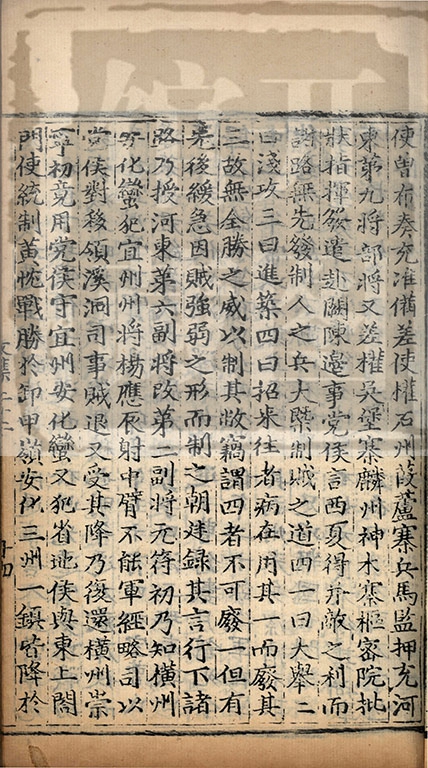 使曽布奏充准備差使權石州葭蘆寨兵馬監押充河
東第九將部將又差權吳堡寨麟州神木寨樞密院批
狀指揮發遣赴闕陳邊事党侯言西夏得弁敵之利而
諸路無先發制人之兵大槩制賊之道四一曰大舉二
曰淺攻三曰進築四曰招来往者病在用其一而廢其
三故無全勝之威以制其敝竊謂四者不可廢一但有
先後緩急因賊強弱之形而制之朝廷録其言行下諸
路乃授河東第六副將改第二副將元符初乃知橫州
安化蠻犯宜州州將楊應辰射中臂不能軍經略司以
党侯對移領溪洞司事賊退又受其降乃復還橫州崇
寧初竟用党侯守宜州安化蠻又犯省地侯與東上閤
門使統制黃忱戰勝於卸甲嶺安化三州一鎮皆降於
文集二十二
十四